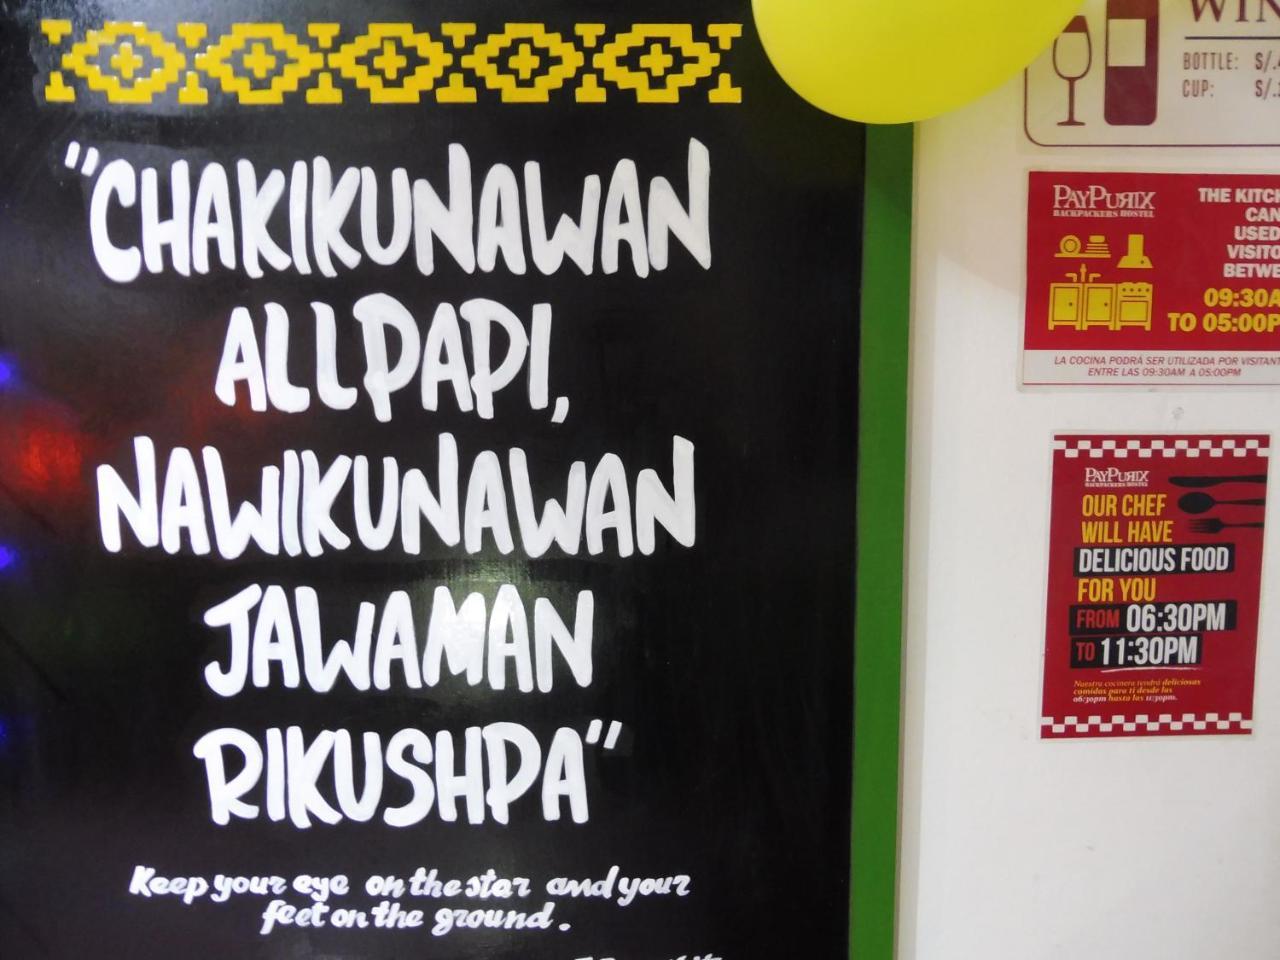 "CHAKIKUNAWAN
ALLPAPI,
NAWIKUNAWAN
JAWAMAN
RIKUSHPA"
Keep your eye on the star and your
feet on the ground.
BOTTLE: S/.
CUP: S/.
PAYPURIX
BACKPACKERS HOSTEL
THE
USED
09:30A
TO 05:00P
LA COCINA PODRÁ SER UTILIZADA POR VISITANT
ENTRE LAS 09:30AM A 05:00PM
PAYPURIX
BACKPACKERS HOSTEL
OUR CHEF
WILL HAVE
DELICIOUS FOOD
FOR YOU
FROM 06:30PM
TO 11:30PM
Nuestra cocinera tendrá deliciosas
comidas para ti desde las
06:30pm hasta las 11:30pm.